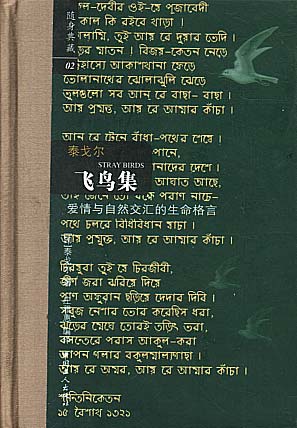 随身典藏
02
কল-দেবীর ওই-যে পূজাবেদী
কাল কি রইবে খাড়া ।
পাগলামি, তুই আয় রে দুয়ার ভেদি ।
ঝড়ের মাতন । বিজয়-কেতন নেড়ে
অট্টহাস্যে আকাশখানা ফেড়ে
ভোলানাথের ঝোলাঝুলি ঝেড়ে
ভুলগুলো সব আন্ রে বাছা-বাছা ।
আয় প্রমত্ত, আয় রে আমার কাঁচা ।
আন্ রে টেনে বাঁধা-পথের শেষে ।
泰戈尔
পানে,
STRAY BIRDS
জানাদের দেশে ।
飞鸟集
আঘাত আছে,
পরান নাচে,
爱情与自然交汇的生命格言
পথে চলার বিধিবিধান যাচা ।
আয় প্রমুক্ত, আয় রে আমার কাঁচা ।
চিরযুবা তুই যে চিরজীবী,
জীর্ণ জরা ঝরিয়ে দিয়ে
প্রাণ অফুরান ছড়িয়ে দেদার দিবি ।
সবুজ নেশায় ভোর করেছিস ধরা,
ঝড়ের মেঘে তোরই তড়িৎ ভরা,
বসন্তেরে পরাস আকুল-করা
আপন গলার বকুলমাল্যগাছা ।
আয় রে অমর, আয় রে আমার কাঁচা ।
শান্তিনিকেতন
১৫ বৈশাখ ১৩২১